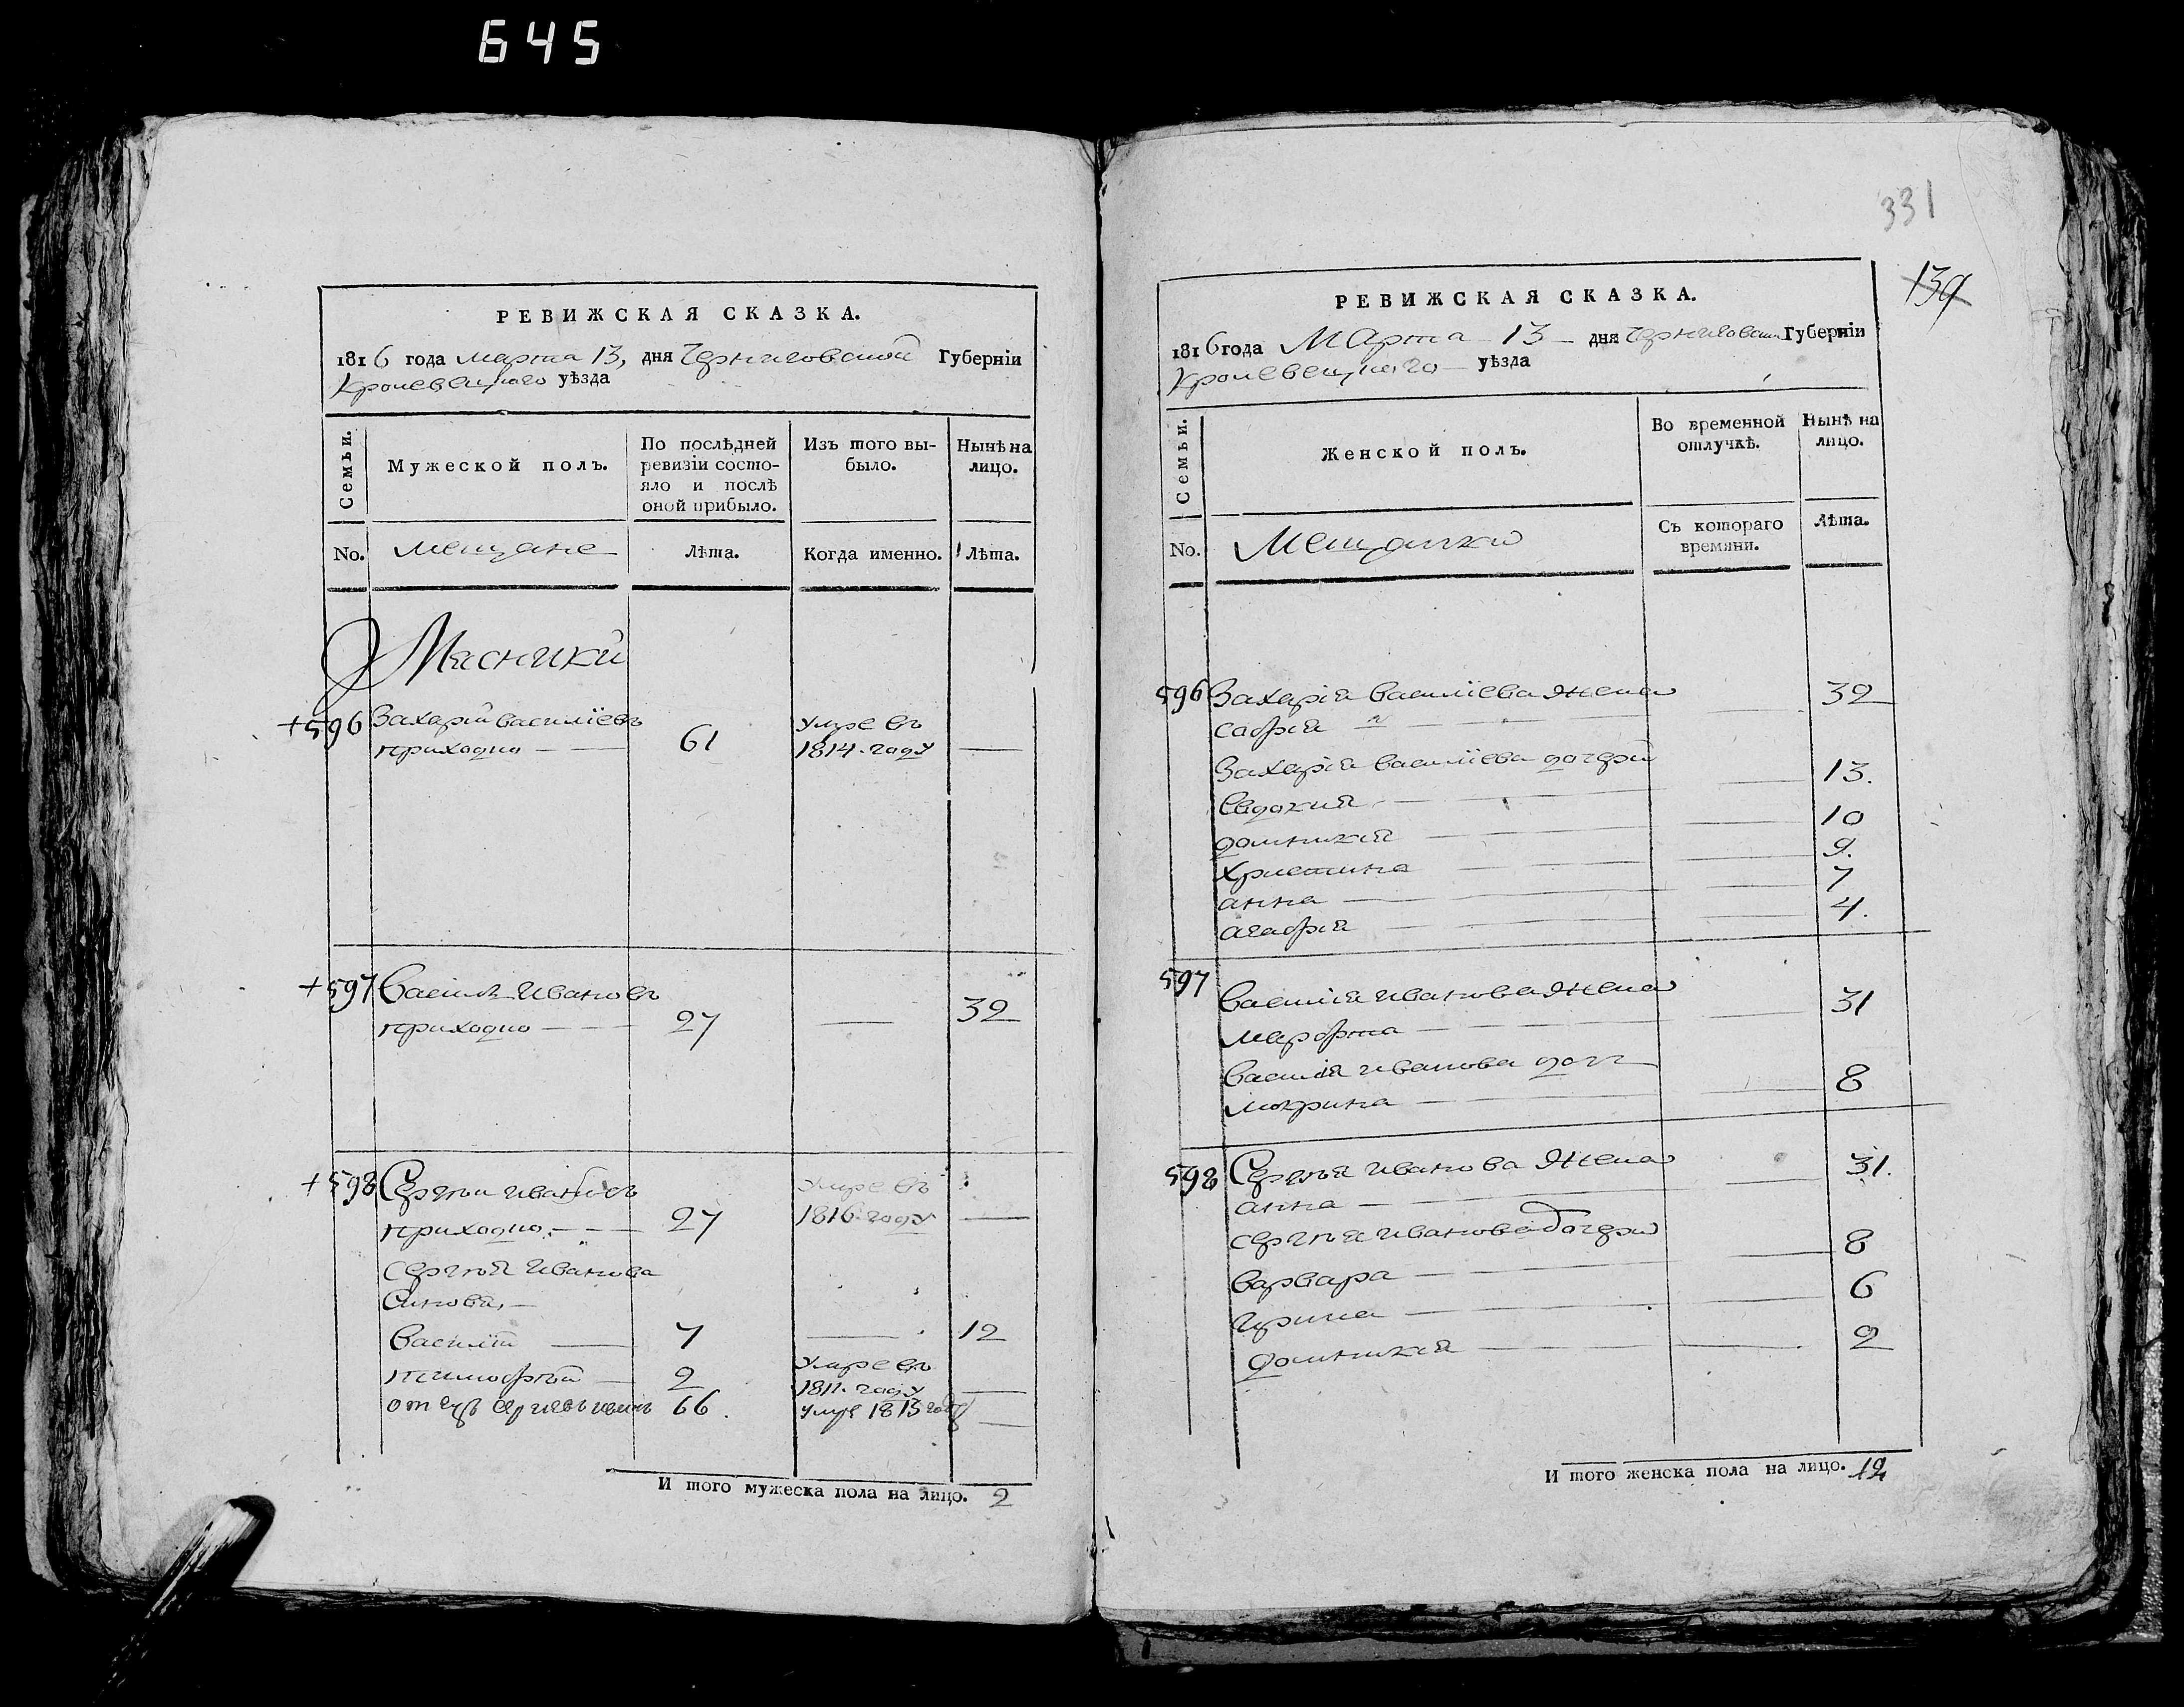 645
РЕВИЖСКАЯ СКАЗКА.
1816 года марта 13, дня Черниговской Губерніи
Кролевецкаго уѣзда
Семьи.
Мужеской полъ.
По послѣдней ревизіи состояло и послѣ оной прибыло.
Изъ того выбыло.
Нынѣ на лицо.
No.
мещане
Лѣта.
Когда именно.
Лѣта.
Мясники
+596 Захарій василіевъ
приходко 61 умре въ 1814. году
+597 Василь Ивановъ
приходко 27 32
+598 Сергѣи ивановъ
приходко 27 умре въ 1816. году
сергѣя Иванова
Синови
Василій 7 12
тимофѣй 2 умре въ 1811. году
отецъ 66. умре 1813 году
И того мужеска пола на лицо. 2
331
139
РЕВИЖСКАЯ СКАЗКА.
1816 года Марта 13 дня Черниговской Губерніи
Кролевецкаго уѣзда
Семьи.
Женской полъ.
Во временной отлучкѣ.
Нынѣ на лицо.
No.
Мещанки
Съ котораго времяни.
Лѣта.
596 Захарія василіева жена
софія 32
Захарія василіева дочери
Евдокия 13.
домникія 10
христина 9.
анна 7
агафія 4.
597 Василія иванова жена
марфта 31
Василія иванова дочь
мокрина 8
598 Сергѣя иванова жена
анна 31.
сергѣя иванова дочери
варвара 8
ирина 6
домникия 2
И того женска пола на лицо. 12